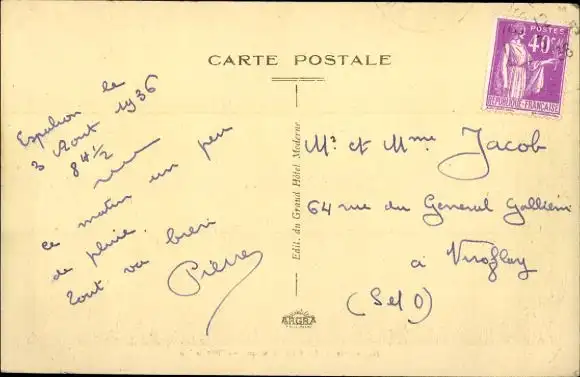 CARTE POSTALE
POSTES
40c
REPUBLIQUE-FRANÇAISE
le
3 Aout 1936
8h 1/2
ce matin un peu
de pluie.
Tout va bien
Pierre
Edit. du Grand Hôtel Moderne
ARGRA
Mr et Mme Jacob
64 rue du General Gallieni
à Viroflay
(S et O)